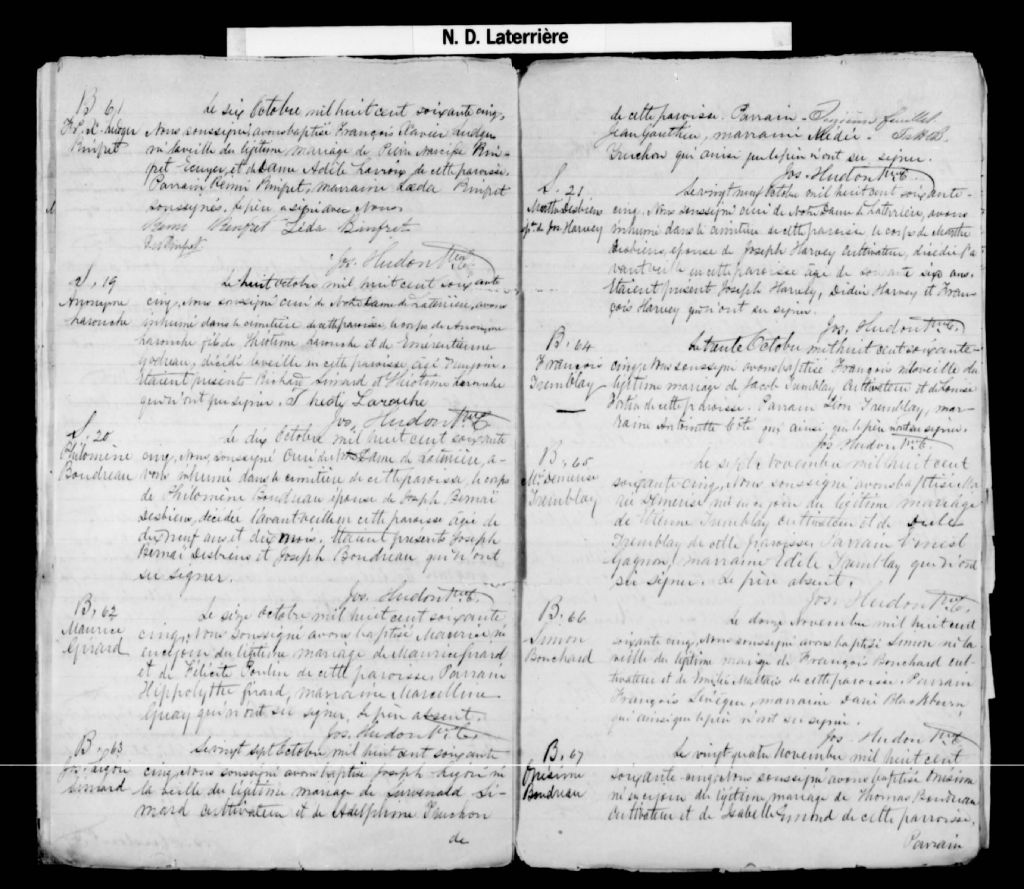 N. D. Laterrière
B 61
Le six Octobre mil huit cent soixante cinq,
Nous soussigné avons baptisé François Xavier Ludger
né la veille du légitime mariage de
Rinfret
Ecuyer, et de Dame Adèle Lavoie de cette paroisse.
Parrain Rémi Rinfret, marraine Léda Rinfret
soussignés, le père a signé avec Nous.
Rémi Rinfret Léda Rinfret
Jos. Hudon Ptre C.
S. 19
Anonyme
Larouche
Le huit octobre mil huit cent soixante
cinq, Nous soussigné curé de Notre Dame de Laterrière, avons
inhumé dans le cimetière de cette paroisse, le corps de Anonyme
Larouche fils de Théotime Larouche et de Emérentienne
décédé la veille en cette paroisse, âgé d'un jour.
Etaient présents Richard Simard et Théotime Larouche
qui n'ont pu signer. Larouche
Jos. Hudon Ptre C.
S. 20
Philomène
Boudreau
Le dix Octobre mil huit cent soixante
cinq, Nous, soussigné Curé de Ntre Dame de Laterrière, a-
vons inhumé dans le cimetière de cette paroisse, le corps
de Philomène Boudreau épouse de Joseph
Desbiens, décédée l'avant veille en cette paroisse âgée de
dix neuf ans et dix mois. Etaient présents Joseph
Desbiens et Joseph Boudreau qui n'ont
su signer.
Jos. Hudon Ptre C.
B, 62
Maurice
Girard
Le seize octobre mil huit cent soixante
cinq, Nous soussigné avons baptisé Maurice, né
en ce jour du légitime mariage de Maurice Girard
et de Félicité Poulin de cette paroisse. Parrain
Hippolythe Girard, marraine Marcelline
Guay qui n'ont su signer, le père absent.
Jos. Hudon Ptre C.
B, 63
Simard
Le vingt sept Octobre mil huit cent soixante
cinq, Nous soussigné avons baptisé Joseph né
la veille du légitime mariage de Si-
mard cultivateur et de Adelphine Truchon
de
de cette paroisse. Parrain
Jean Gauthier, marraine Médée
Truchon qui ainsi que le père n'ont su signer.
Jos. Hudon Ptre C.
S. 21
Marthe Desbiens
ép. de Jos Harvey
Le vingt neuf Octobre mil huit cent soixante-
cinq, Nous soussigné curé de Notre Dame de Laterrière, avons
inhumé dans le cimetière de cette paroisse le corps de Marthe
Desbiens, épouse de Joseph Harvey cultivateur, décédée l'a-
vant veille en cette paroisse âgée de soixante six ans.
Etaient présent Joseph Harvey, Didier Harvey et Fran-
çois Harvey qui n'ont su signer.
Jos. Hudon Ptre C.
B, 64
François
Tremblay
Le trente Octobre mil huit cent soixante-
cinq, Nous soussigné avons baptisé François né la veille du
légitime mariage de Jacob Tremblay Cultivateur et de Louise
Fortin de cette paroisse. Parrain Léon Tremblay, mar-
raine Antoinette Côté qui ainsi que le père n'ont su signer.
Jos. Hudon Ptre C.
B, 65
Tremblay
Le sept Novembre mil huit cent
soixante-cinq, Nous soussigné avons baptisé Ma-
rie né en ce jour du légitime mariage
de Etienne Tremblay cultivateur et de
Tremblay de cette paroisse. Parrain Ernest
Gagnon, marraine Edile Tremblay qui n'ont
su signer. Le père absent.
Jos. Hudon Ptre C.
B, 66
Simon
Bouchard
Le douze Novembre mil huit cent
soixante cinq, Nous soussigné avons baptisé Simon né la
veille du légitime mariage de François Bouchard cul-
tivateur et de Maltais de cette paroisse. Parrain
François marraine Blackburn
qui ainsi que le père n'ont su signer.
Jos. Hudon Ptre C.
B, 67
Onésime
Boudreau
Le vingt quatre Novembre mil huit cent
soixante-cinq, Nous soussigné avons baptisé Onésime
né en ce jour du légitime mariage de Thomas Boudreau
cultivateur et de Isabelle Emond de cette paroisse.
Parrain